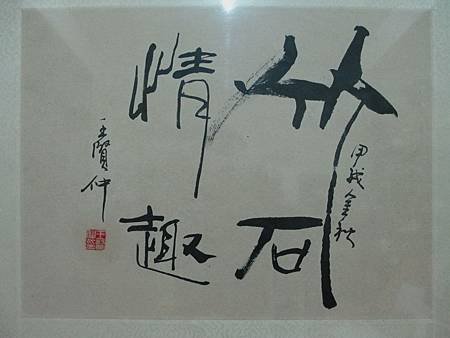 甲戌金秋
竹石
情趣
王賢仲